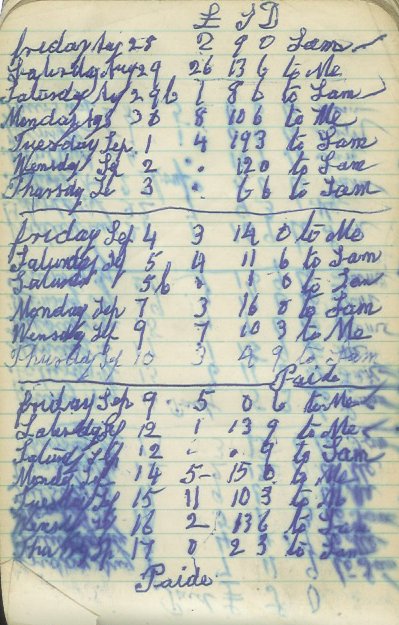 £ S D
Friday Aug 28 2 9 0 Sam
Saturday Aug 29 26 13 6 to Me
Saturday Ag 29 6 1 8 6 to Sam
Monday Ags 30 8 10 6 to Me
Tuesday Sep 1 4 19 3 to Sam
Wensdy Sep 2 . 12 0 to Sam
Thursday Se 3 . 6 6 to Sam
Friday Sep 4 3 14 0 to Me
Saturday Sep 5 4 11 6 to Sam
Saturday 5 6 0 1 0 to Sam
Monday Sep 7 3 16 0 to Sam
Wensday Sep 9 7 10 3 to Me
Thursday Sep 10 3 4 9 to Sam
Paide
Friday Sep 9 5 0 6 to Me
Saterday Sep 12 1 13 9 to Me
Saturd Sep 12 . . 9 to Sam
Monday Sep 14 5 - 15 0 to Me
Tuesday Sep 15 11 10 3 to Me
Wensd Sep 16 2 13 6 to Sam
Thursday Sep 17 0 2 3 to Sam
Paide